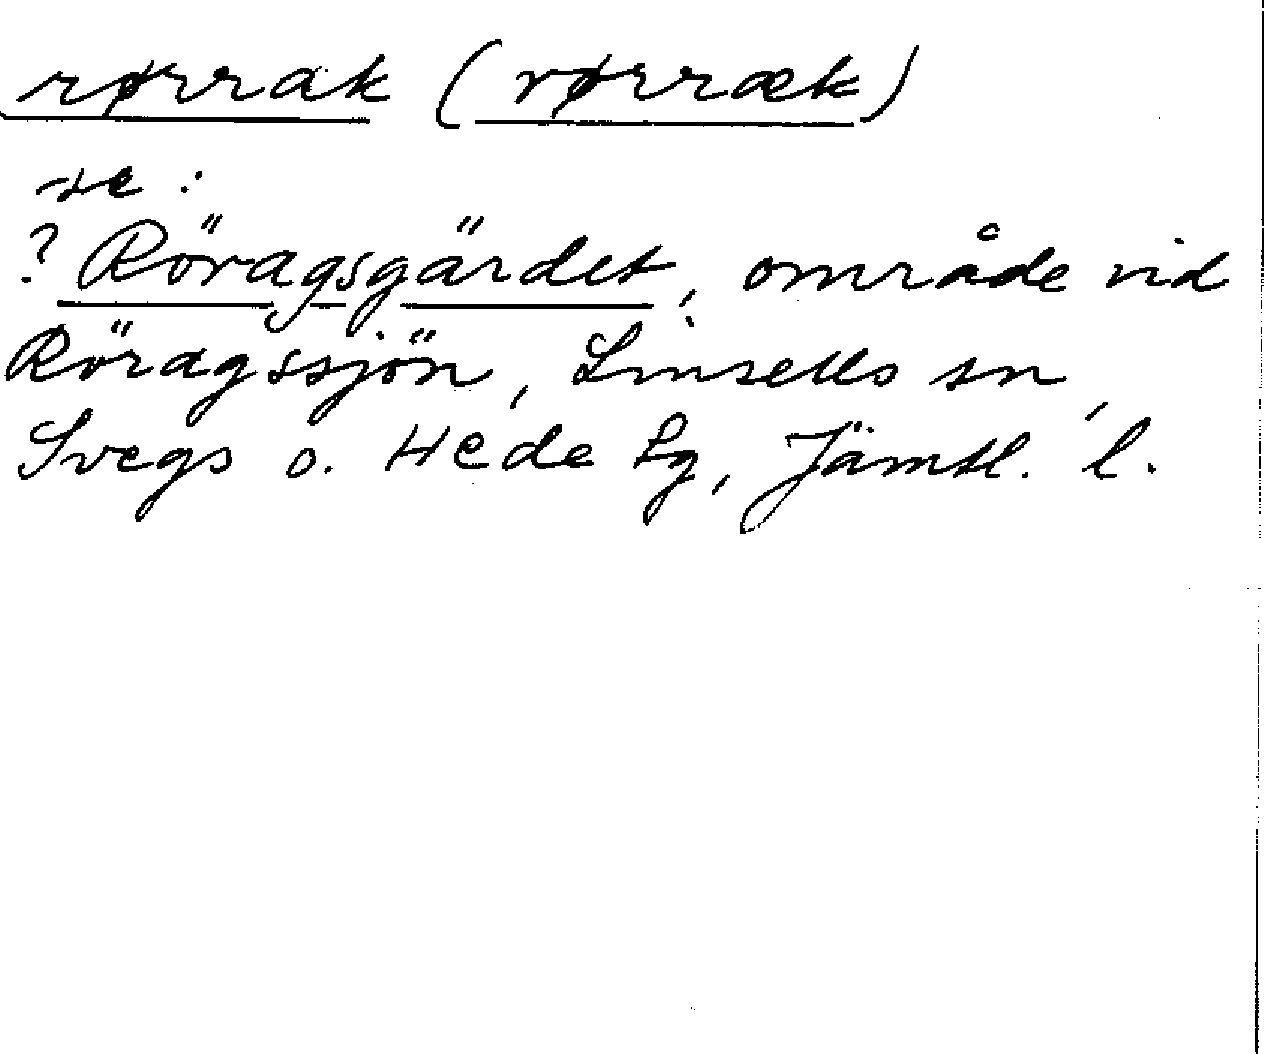 rørrak (rørræk)
se:
? Röragsgärdet, område vid
Röragssjön, Linsells sn,
Svegs o. Hede tg, Jämtl. l.